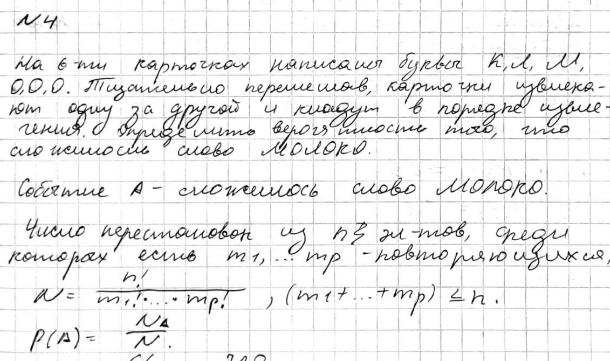 N4
На 6-ти карточках написаны буквы К, Л, М,
О, О, О. Тщательно перемешав, карточки извлека-
ют одну за другой и кладут в порядке извле-
чения. Определить вероятность того, что
сложилось слово МОЛОКО.
Событие A - сложилось слово МОЛОКО.
Число перестановок из n эл-тов, среди
которых есть m1, ... mp - повторяющихся,
N = n! / m1! · ... · mp! , (m1 + ... + mp) ≤ n.
P(A) = NA / N.